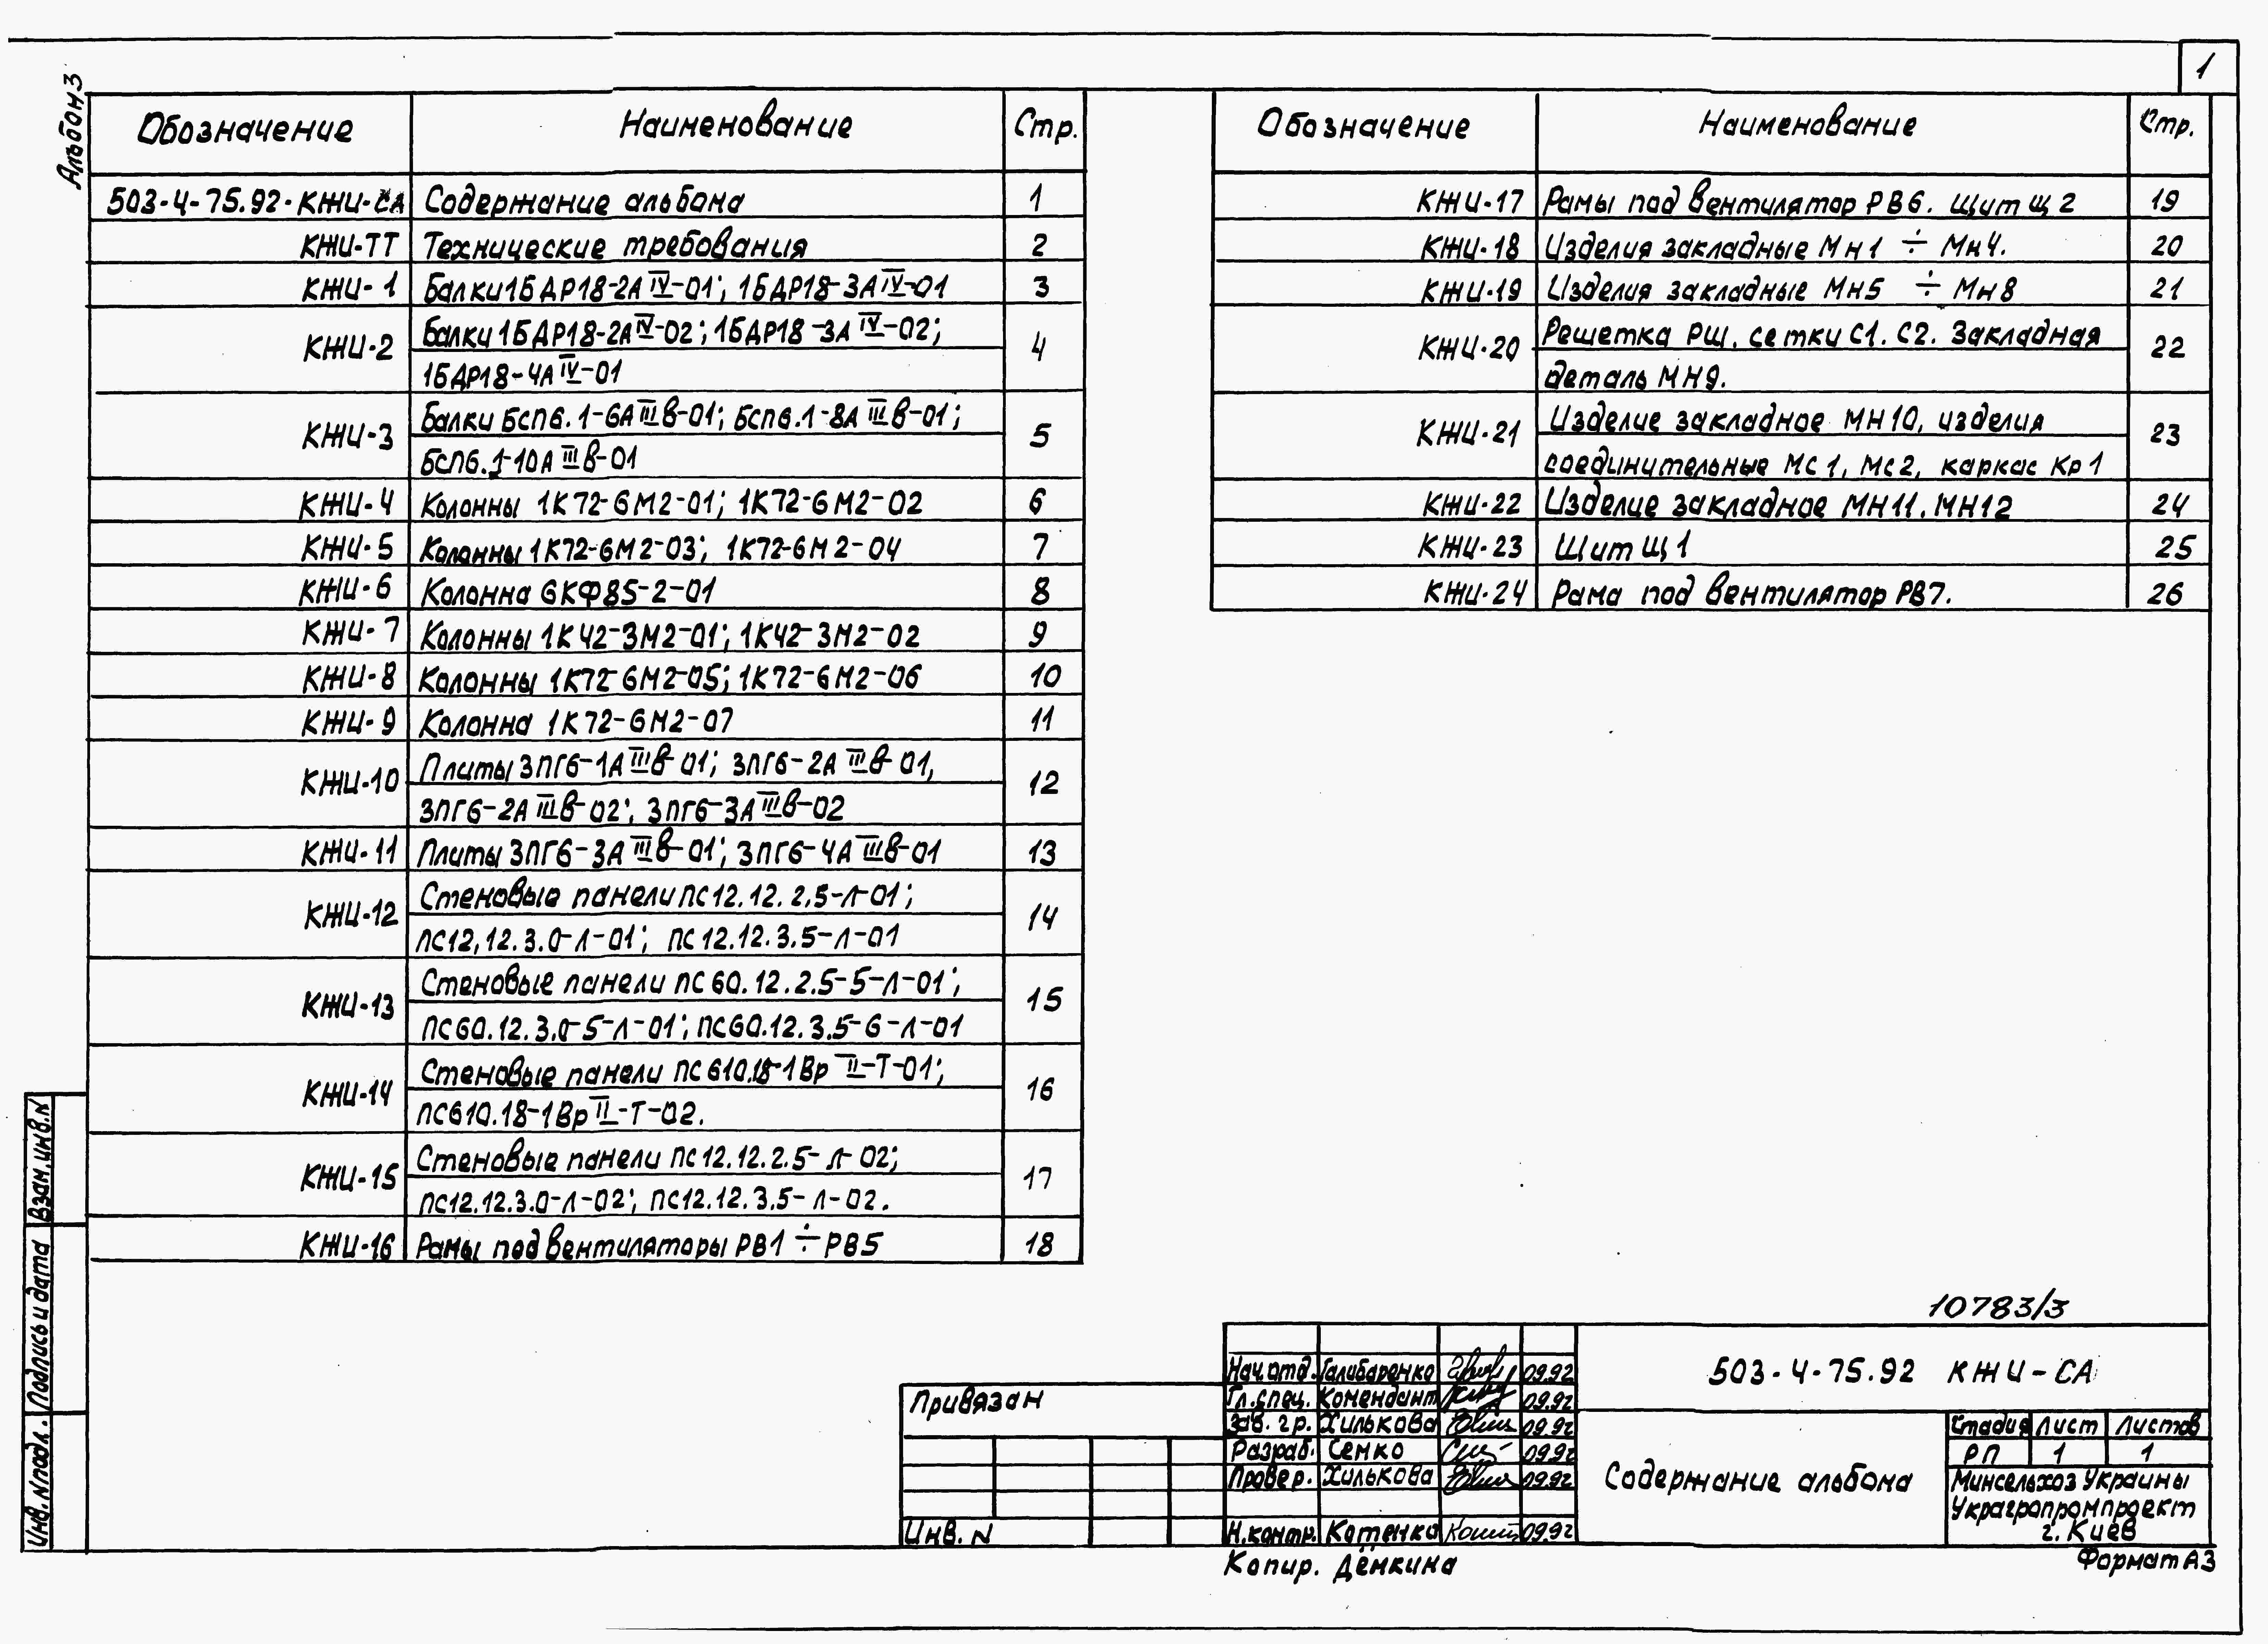 1
Альбом 3
Обозначение Наименование Стр.
503-4-75.92-КЖИ-СА Содержание альбома 1
КЖИ-ТТ Технические требования 2
КЖИ-1 Балки 1БДР18-2АIV-01; 1БДР18-3АIV-01 3
КЖИ-2 Балки 1БДР18-2АIV-02; 1БДР18-3АIV-02; 4
1БДР18-4АIV-01
КЖИ-3 Балки БСП6.1-6АIIIв-01; БСП6.1-8АIIIв-01; 5
БСП6.1-10АIIIв-01
КЖИ-4 Колонны 1К72-6М2-01; 1К72-6М2-02 6
КЖИ-5 Колонны 1К72-6М2-03; 1К72-6М2-04 7
КЖИ-6 Колонна 6КФ85-2-01 8
КЖИ-7 Колонны 1К42-3М2-01; 1К42-3М2-02 9
КЖИ-8 Колонны 1К72-6М2-05; 1К72-6М2-06 10
КЖИ-9 Колонна 1К72-6М2-07 11
КЖИ-10 Плиты 3ПГ6-1АIIIв-01; 3ПГ6-2АIIIв-01, 12
3ПГ6-2АIIIв-02; 3ПГ6-3АIIIв-02
КЖИ-11 Плиты 3ПГ6-3АIIIв-01; 3ПГ6-4АIIIв-01 13
КЖИ-12 Стеновые панели ПС12.12.2,5-Л-01; 14
ПС12,12.3.0-Л-01; ПС12.12.3.5-Л-01
КЖИ-13 Стеновые панели ПС60.12.2.5-5-Л-01; 15
ПС60.12.3.0-5-Л-01; ПС60.12.3.5-6-Л-01
КЖИ-14 Стеновые панели ПС610.18-1ВрII-Т-01; 16
ПС610.18-1ВрII-Т-02.
КЖИ-15 Стеновые панели ПС12.12.2.5-Л-02; 17
ПС12.12.3.0-Л-02; ПС12.12.3.5-Л-02.
КЖИ-16 Рамы под вентиляторы РВ1 ÷ РВ5 18
Обозначение Наименование Стр.
КЖИ-17 Рамы под вентилятор РВ6. Щит Щ2 19
КЖИ-18 Изделия закладные Мн1 ÷ Мн4. 20
КЖИ-19 Изделия закладные Мн5 ÷ Мн8 21
КЖИ-20 Решетка РШ. сетки С1. С2. Закладная 22
деталь МН9.
КЖИ-21 Изделие закладное МН10, изделия 23
соединительные МС1, МС2, каркас Кр1
КЖИ-22 Изделие закладное МН11. МН12 24
КЖИ-23 Щит Щ1 25
КЖИ-24 Рама под вентилятор РВ7. 26
Взам.инв.N
Подпись и дата
Инв.Nподл.
10783/3
Привязан
Инв. N
Нач.отд. Галибаренко 09.92
Гл.спец. Комендант 09.92
Зав. гр. Хилькова 09.92
Разраб. Семко 09.92
Провер. Хилькова 09.92
Н.контр. Котенко 09.92
503-4-75.92 КЖИ-СА
Содержание альбома
Стадия Лист Листов
РП 1 1
Минсельхоз Украины
Украгропромпроект
г. Киев
Копир. Дёмкина
Формат А3